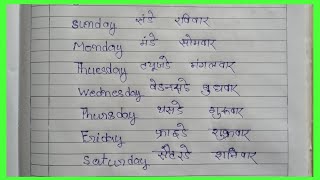 Sunday संडे रविवार
Monday मंडे सोमवार
Thuesday ट्यूजडे मंगलवार
Wednesday वेडनसडे बुधवार
Thursday थर्सडे गुरूवार
Friday फ्राइडे शुक्रवार
Saturday सैटरडे शनिवार